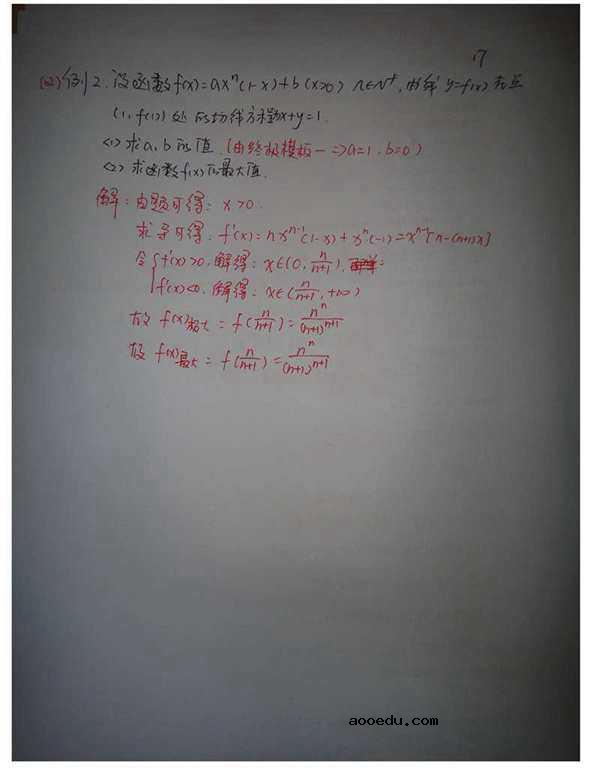 17
(2)例2.设函数f(x)=ax^n(1-x)+b(x>0) n∈N⁺,曲线y=f(x)在点
(1,f(1))处的切线方程为x+y=1.
<1>求a,b的值.(由终极模板一⇒a=1.b=0)
<2>求函数f(x)的最大值.
解:由题可得:x>0.
求导可得:f'(x)=nx^{n-1}(1-x)+x^n(-1)=x^{n-1}[n-(n+1)x]
令{f'(x)>0.解得:x∈(0,n/(n+1)).
f'(x)<0.解得:x∈(n/(n+1),+∞)
故f(x)极大=f(n/(n+1))=n^n/(n+1)^{n+1}
故f(x)最大=f(n/(n+1))=n^n/(n+1)^{n+1}
aooedu.com